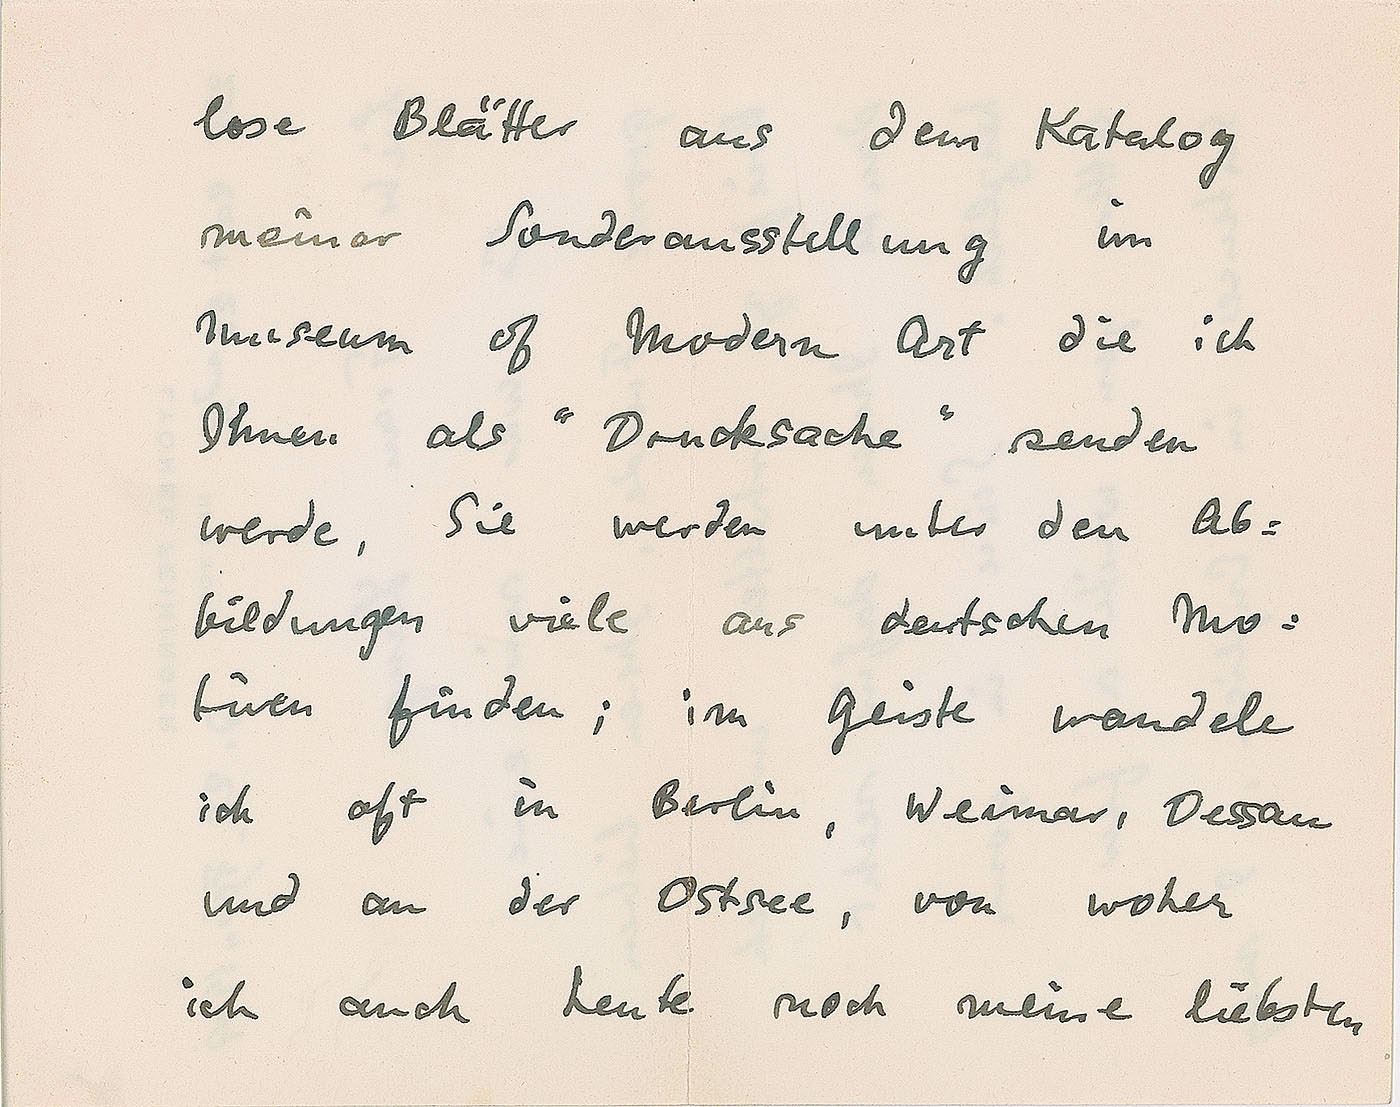 lose Blätter aus dem Katalog
meiner Sonderausstellung im
Museum of Modern Art die ich
Ihnen als "Drucksache" senden
werde, Sie werden unter den Ab=
bildungen viele aus deutschen Mo=
tiven finden; im Geiste wandele
ich oft in Berlin, Weimar, Dessau
und an der Ostsee, von woher
ich auch heute noch meine liebsten
LYONEL FEININGER